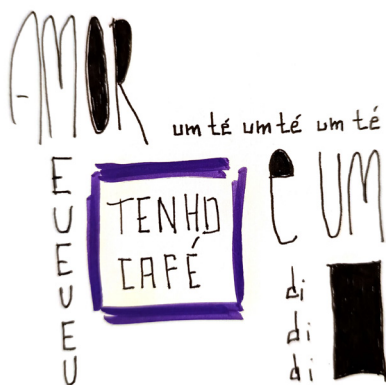 AMOR
um té um té um té
E
U
E
U
E
U
TENHO
CAFÉ
É UM
di
di
di